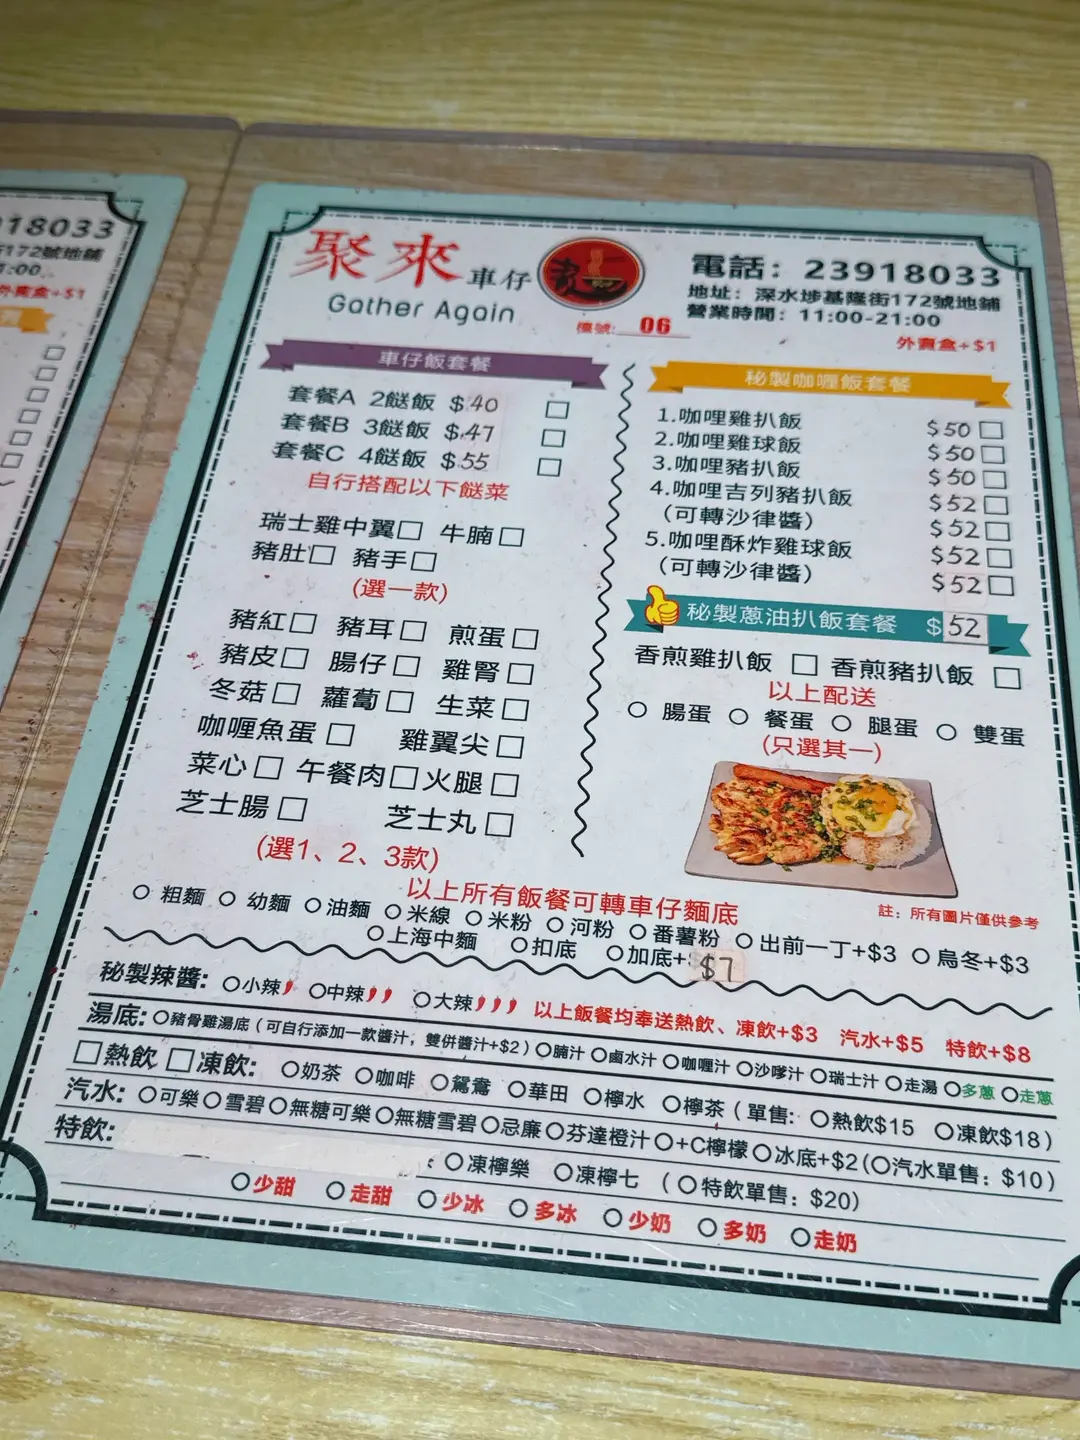 918033
172號地舖
1:00
外賣盒+$1
聚來車仔
Gather Again
電話：23918033
地址：深水埗基隆街172號地舖
營業時間：11:00-21:00
檯號: 06
外賣盒+$1
車仔飯套餐
套餐A 2餸飯 $40
套餐B 3餸飯 $47
套餐C 4餸飯 $55
自行搭配以下餸菜
瑞士雞中翼□ 牛腩□
豬肚□ 豬手□
(選一款)
豬紅□ 豬耳□ 煎蛋□
豬皮□ 腸仔□ 雞腎□
冬菇□ 蘿蔔□ 生菜□
咖喱魚蛋□ 雞翼尖□
菜心□ 午餐肉□火腿□
芝士腸□ 芝士丸□
(選1、2、3款)
秘製咖喱飯套餐
1.咖哩雞扒飯 $50□
2.咖哩雞球飯 $50□
3.咖哩豬扒飯 $50□
4.咖哩吉列豬扒飯 $52□
(可轉沙律醬) $52□
5.咖哩酥炸雞球飯 $52□
(可轉沙律醬) $52□
秘製蔥油扒飯套餐 $52
香煎雞扒飯 □ 香煎豬扒飯 □
以上配送
○ 腸蛋 ○ 餐蛋 ○ 腿蛋 ○ 雙蛋
(只選其一)
註：所有圖片僅供參考
以上所有飯餐可轉車仔麵底
○ 粗麵 ○ 幼麵 ○油麵 ○米線 ○米粉 ○河粉 ○番薯粉 ○出前一丁+$3 ○烏冬+$3
○上海中麵 ○扣底 ○加底+$7
秘製辣醬: ○小辣 ○中辣 ○大辣 以上飯餐均奉送熱飲、凍飲+$3 汽水+$5 特飲+$8
湯底: ○豬骨雞湯底（可自行添加一款醬汁，雙併醬汁+$2）○腩汁 ○鹵水汁 ○咖喱汁 ○沙嗲汁 ○瑞士汁 ○走湯 ○多蔥 ○走蔥
□熱飲 □凍飲: ○奶茶 ○咖啡 ○鴛鴦 ○華田 ○檸水 ○檸茶（單售: ○熱飲$15 ○凍飲$18）
汽水: ○可樂○雪碧○無糖可樂○無糖雪碧○忌廉○芬達橙汁○+C檸檬○冰底+$2(○汽水單售: $10)
特飲: ○凍檸樂 ○凍檸七 （○特飲單售: $20）
○少甜 ○走甜 ○少冰 ○多冰 ○少奶 ○多奶 ○走奶